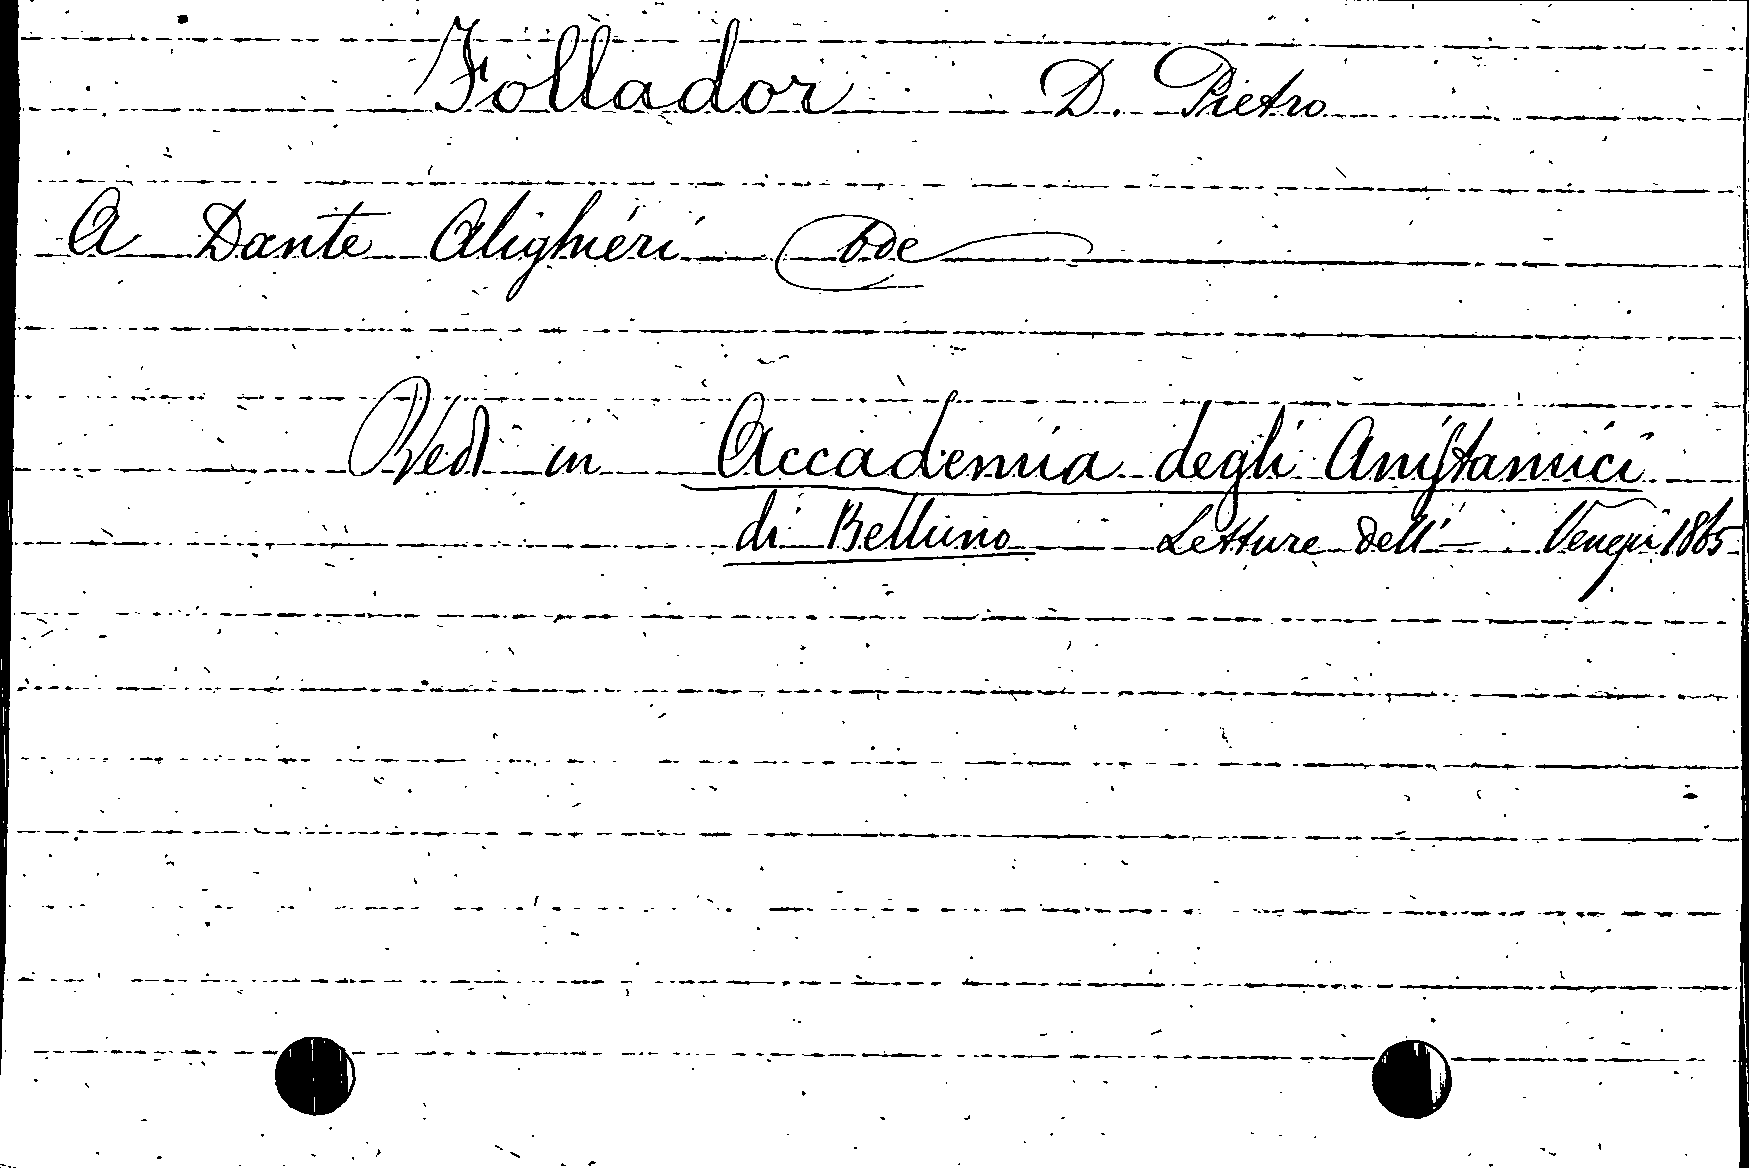 Follador D. Pietro
A Dante Alighieri Ode
Vedi in Accademia degli Anistamici
di Belluno Letture dell' — Venezia 1865